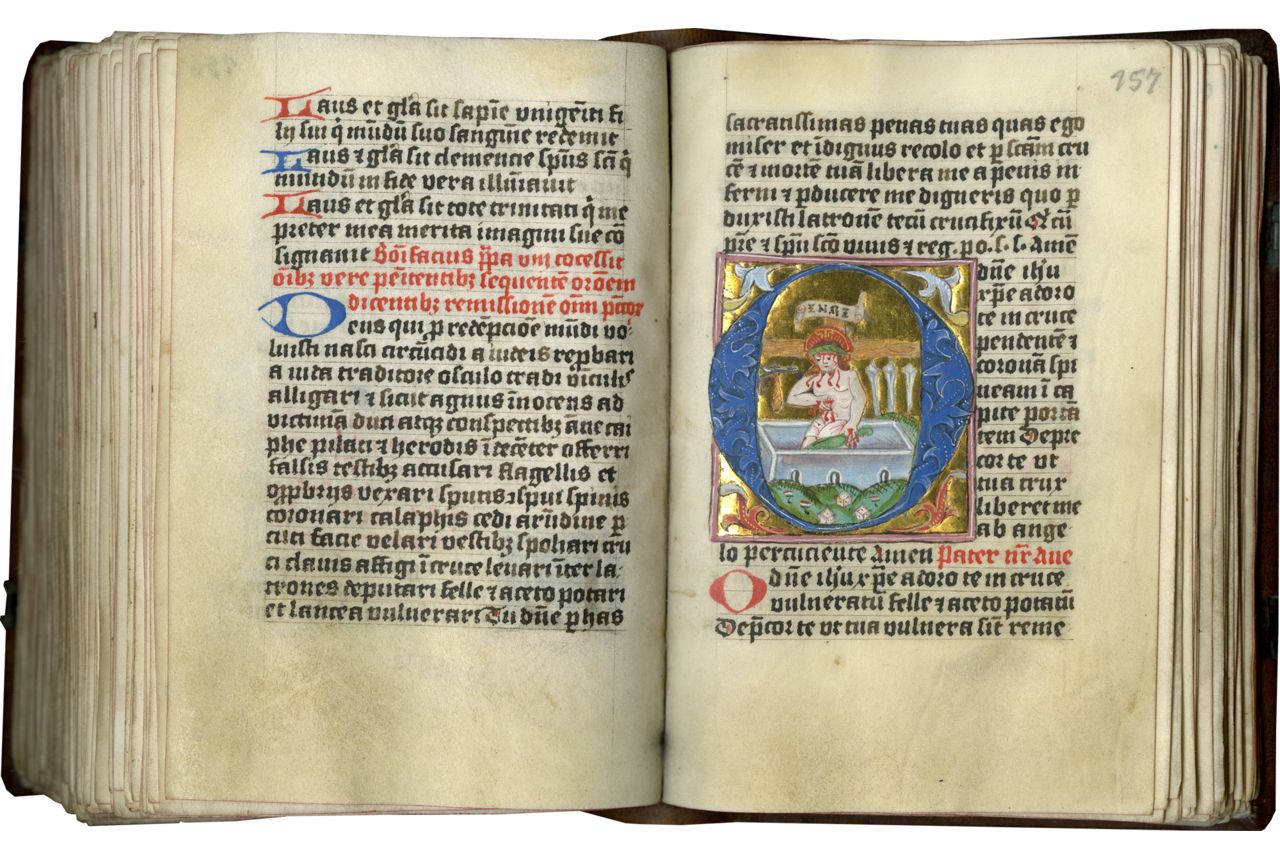 Laus et gl̄a sit sapīe vnigēiti fi
lij sui q̇ mūdū suo sanguīe redemit
Laus ⁊ gl̄a sit clemencie sp̄us sc̄i q̇
mundū in fide vera illūīauit
Laus et gl̄a sit tote trinitati q̇ me
preter mea merita imagini sue cō
signauit Bōifacius pp̄a viij cōcessit
oībꝫ vere pēitentibꝫ sequentē orōem
dicentibꝫ remissionē om̄ pctōꝝ
Deus qui ꝓ redēpcioē mūdi vo-
luisti nasci circūcidi a iudeis rep̄bari
a iuda traditore osculo tradi vīculis
alligari ⁊ sicut agnus īnocens ad
victimā duci atqꝫ conspectibꝫ āne cai
phe pilati ⁊ herodis īdecēter offerri
falsis testibꝫ accusari flagellis et
opp̄brijs vexari sputis ɔspui spinis
coronari calaphis cedi arūdine ꝑ
cuti facie velari vestibꝫ spoliari cru
ci clauis affigi ī cruce leuari īter la-
trones deputari felle ⁊ aceto potari
et lancea vulnerari Tu dn̄e ꝑ has
157
sacratissimas penas tuas quas ego
miser et īdignus recolo et ꝑ sc̄am cru
cē ⁊ mortē tuā libera me a penis in
ferni ⁊ ꝑducere me digneris quo ꝑ
duxisti latronē tecū crucifixū Qi cū
pr̄e ⁊ sp̄u scō viuis ⁊ reg. p. o. s. s. Amē
INRI
O dn̄e ihu
xp̄e adoro
te in cruce
pendentē ⁊
coronā spi
neam ī ca
pite portā
tem Depre
cor te vt
tua crux
liberet me
ab ange
lo percuciente Amen Pater nr̄ Aue
O dn̄e ihu xp̄e adoro te in cruce
vulneratū felle ⁊ aceto potatū
Dep̄cor te vt tua vulnera sīt reme